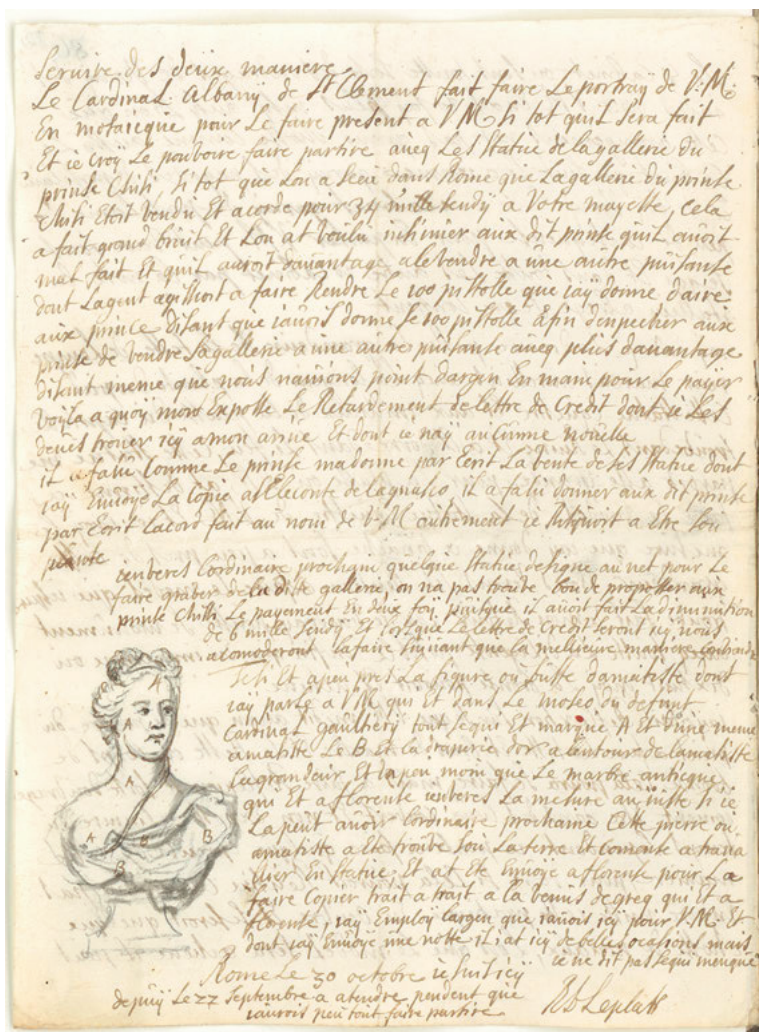 Servire des deux maniere
Le Cardinal Albany de St Clement fait faire Le portraÿ de V.M.
En mosaicque pour Le faire present a VM si tot quil sera fait
Et ie croÿ Le pouvoire faire partire aveq Les statue de la gallerie du
prinse Chisi, si tot que Lon a sceu dans Rome que La gallerie du prinse
Chisi Etoit vendu Et acorde pour 34 mille scudÿ a Votre mayeste, cela
a fait grand bruit Et Lon at voulu inhimer aux dit prinse quil avoit
mal fait Et quil auroit davantage a le vendre a une autre puisanse
dont Lagent agissoit a faire Rendre Le 100 pistolle que iaÿ donne daire
aux prince disant que iavois donne Le 100 pistolle afin denpecher aux
prinse de vendre La gallerie a une autre puisanse aveq plus davantage
disant meme que nous navions point dargen En main pour Le payer
voÿla a quoÿ mon Expose Le Retardement de lettre de Credit dont ie Les
deves trouver icÿ a mon arive Et dont ie naÿ aucunne nouvelle
il a falu Comme Le prinse ma donne par Ecrit La vente de ses statue dont
iaÿ Envoÿe La Copie a Le conte de Lagnasco, il a falu donner aux dit prinse
par Ecrit Lacord fait au nom de V.M. autrement ie Risquoit a Etre son
Lordinaire prochain quelque statue designe au net pour Le
faire graver de la ditte gallerie, on na pas trouve bon de proposser aux
prinse Chisi Le payement En deux foÿ puisque il avoit fait La diminution
de 6 mille scudÿ Et lorsque Le lettre de Credit seront icÿ nous
acomoderont lafaire suivant que la mellieure maniere
Et a peu pres La figure ou buste damatiste dont
iaÿ parle a VM qui Et dans Le museo du defunt
Cardinal gaultiery tout se qui Et marque A Et dune meme
amatiste Le B Et la draperie dor a lentour de lamatiste
La grandeur Et un peu moin que Le marbre antique
qui Et a florense La mesure au juste si ie
La peut avoir Lordinaire prochaine Cette pierre ou
amatiste a Ete trouve sou La terre Et comense a trava
lier En statue, Et at Ete Envoye a florense pour La
faire Copier trait a trait a la venus de greq qui Et a
florense, iaÿ Employ Largen que iavois icÿ pour V.M. Et
dont iaÿ Envoÿe une notte il i at icÿ de belles ocasions mais
ie ne dit pas se qui menque
A
A
A
A
B
B
B
Rome Le 30 octobre ie suit icÿ
depuÿ Le 22 septembre a atendre pendent que
iaurois peu tout faire partire
Leplatt